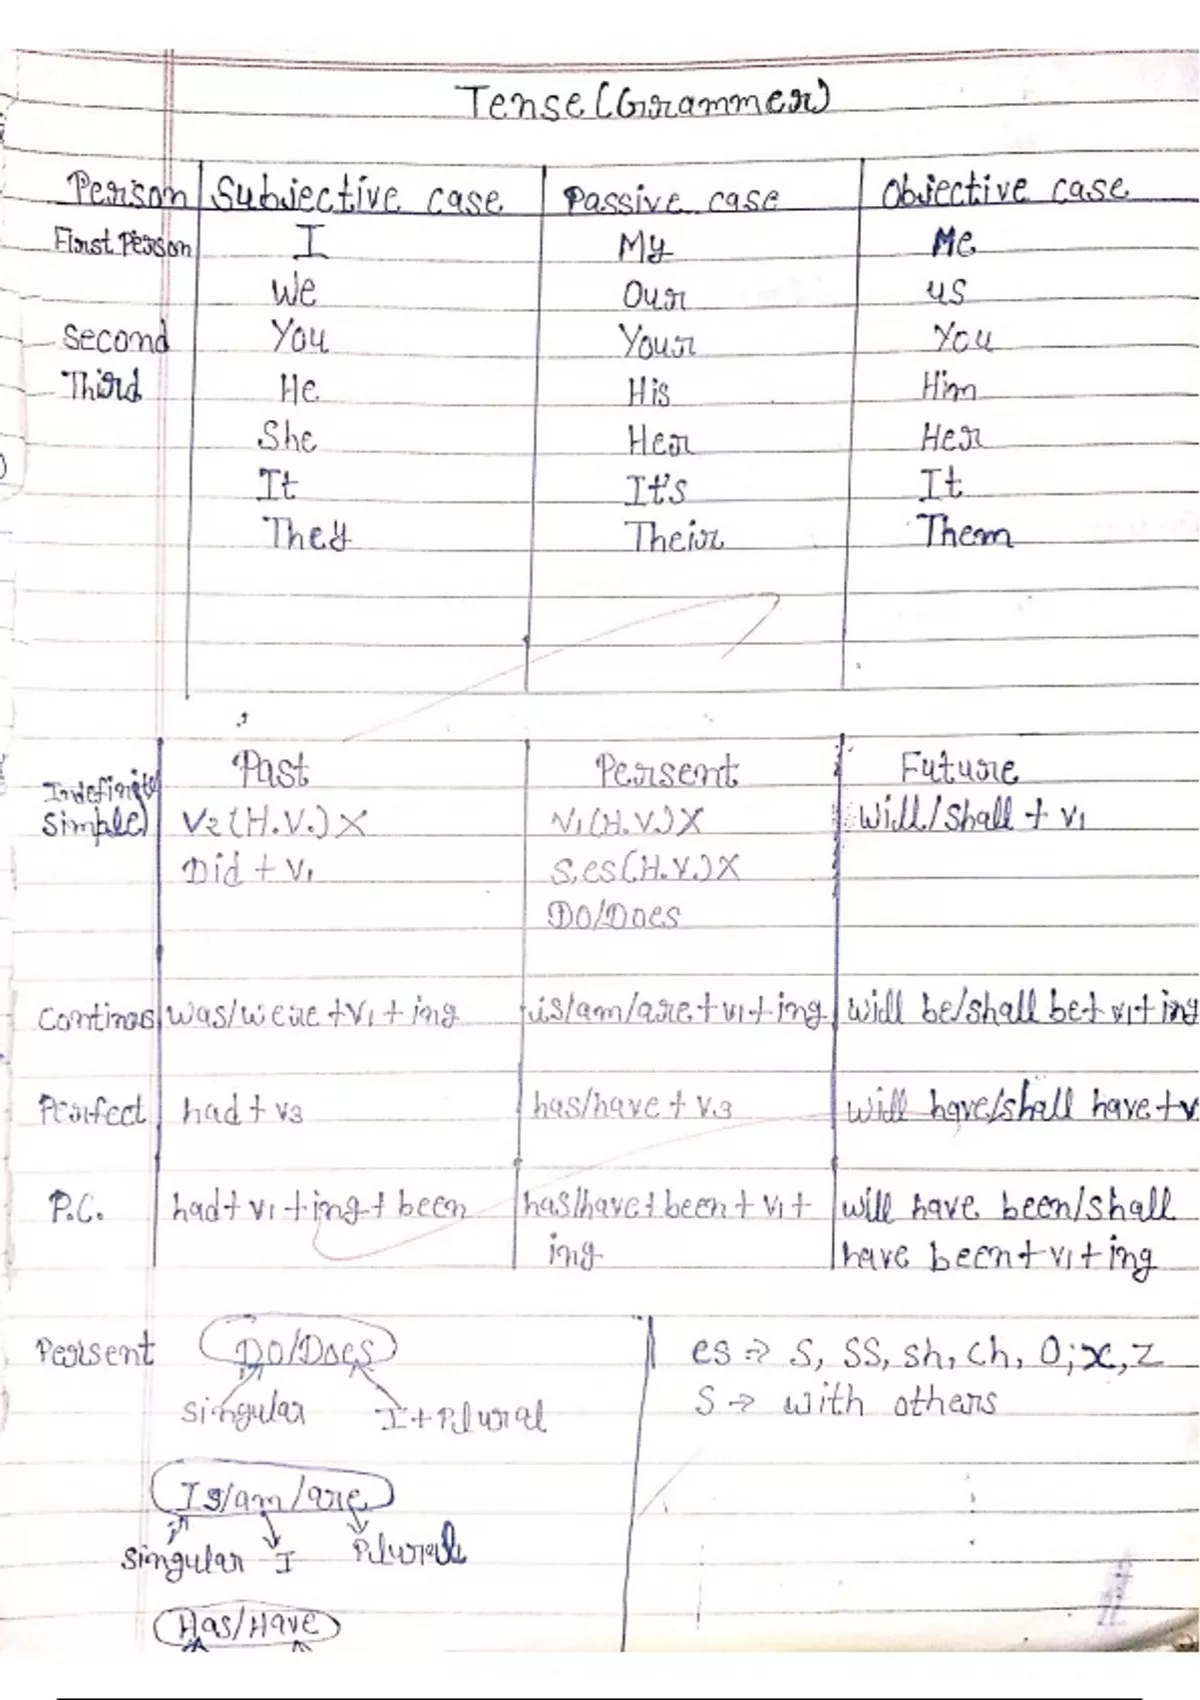 Tense (Grammer)
Person Subjective case Passive case Objective case
First Person I My Me
We Our us
Second You Your You
Third He His Him
She Her Her
It It's It
They Their Them
Past Persent Future
Indefinite
Simple) V2 (H.V.) X V1 (H.V.) X Will/Shall + V1
Did + V1 S, es (H.V.) X
Do/Does
Continos was/were + V1 + ing is/am/are + V1 + ing will be/shall be + V1 + ing
Perfect had + V3 has/have + V3 will have/shall have + V
P.C. had + V1 + ing + been has/have + been + V1 + will have been/shall
ing have been + V1 + ing
Persent Do/Does es → S, SS, sh, ch, O, x, z
Singular I + Plural S → with others
Is/am/are
Singular I Plural
Has/Have